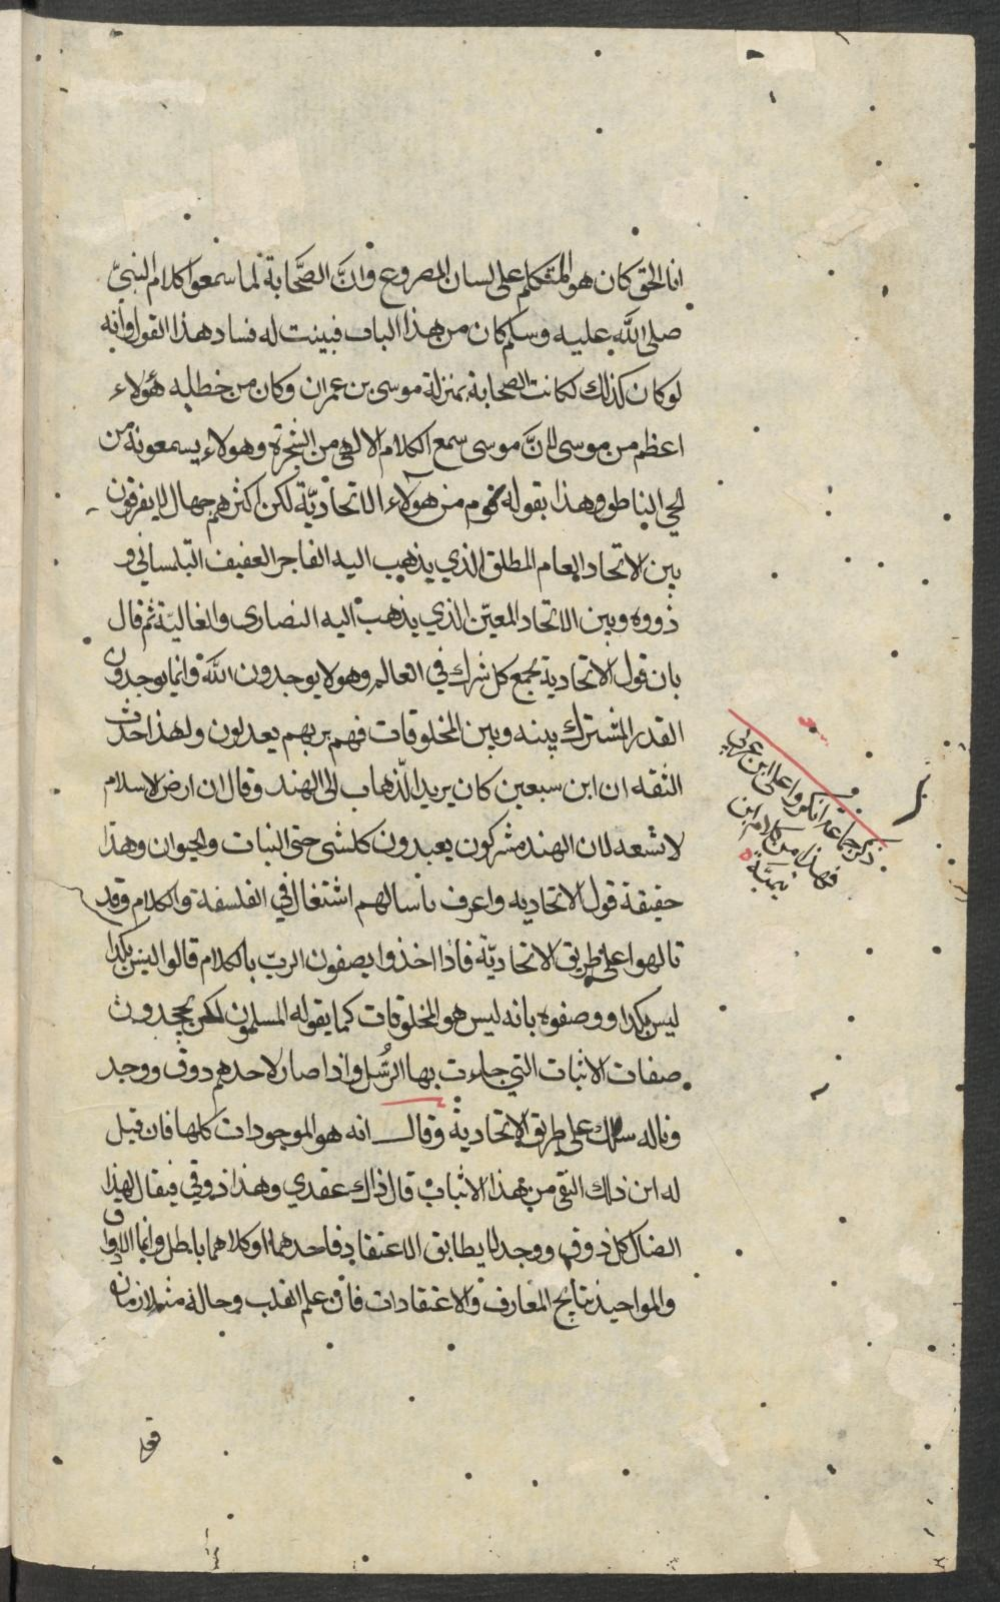 انا الحق كان هو المتكلم على لسان المصروع وانّ الصَّحابة لما سمعوا كلام النبيّ
صلى اللّه عليه وسلم كان من هذا الباب فبينت له فساد هذا القول وانه
لو كان كذلك لكانت الصحابة بمنزلة موسى بن عمران وكان من خطابه هؤلاء
اعظم من موسى لانّ موسى سمع الكلام الالهي من الشجرة وهولاء يسمعونه من
الحي الناطق وهذا يقوله قوم من هولاء الاتحاديّة لكن اكثرهم جهال لا يفرقون
بين الاتحاد العام المطلق الذي يذهب اليه الفاجر العفيف التلمساني و
ذووه وبين الاتحاد المعيّن الذي يذهب اليه النصارى والغاليّة ثم قال
بان قول الاتحادية يجمع كل شرك في العالم وهو لا يوحدون اللّه وانما يوحدون
القدر المشترك بينه وبين المخلوقات فهم بربهم يعدلون ولهذا حدث
الثقه ان ابن سبعين كان يريد الذهاب الى الهند وقال ان ارض الاسلام
لا تسعه لان الهند مشركون يعبدون كلشى حتى النبات والحيوان وهذا
حقيقة قول الاتحاديه واعرف ناسا لهم اشتغال في الفلسفة والكلام وقد
تالهوا على طريق الاتحاديّة فاذا اخذوا يصفون الربّ بالكلام قالوا ليس بكذا
ليس بكذا ووصفوه بانه ليس هو المخلوقات كما يقوله المسلمون لكن يجحدون
صفات الاثبات التي جاءت بها الرُّسل واذا صار لاحدهم ذوق ووجد
وتاله سلك على طريق الاتحادية وقال انه هو الموجودات كلها فان قيل
له اين ذلك النفي من هذا الاثبات قال ذاك عقدي وهذا ذوقي فيقال لهذا
الضال كل ذوق ووجد لا يطابق الاعتقاد فاحدهما او كلاهما باطل وانما الاذواق
والمواجيد نتايج المعارف والاعتقادات فان علم القلب وحاله متلازمان
ذكر جماعة انكروا على ابن عربي
فهذا من كلام ابن
تيمية